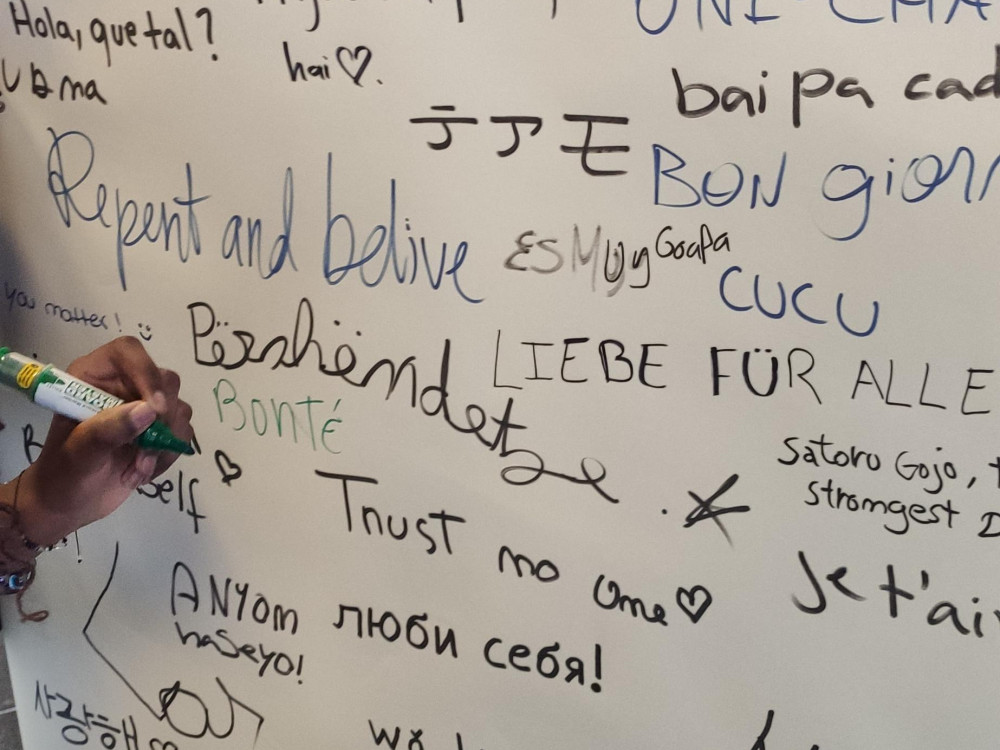 Hola, que tal?
hai♡.
UNI
bai pa cad
テアモ
BON gior
Repent and belive
ES MUy GUAPA
CUCU
you matter! :)
Përshëndetje
LIEBE FÜR ALLE
BONTÉ
self ♡
Satoru Gojo,
stromgest
Trust no one ♡
Je t'ai
ANYOM
haseyo!
люби себя!
사랑해
wǒ